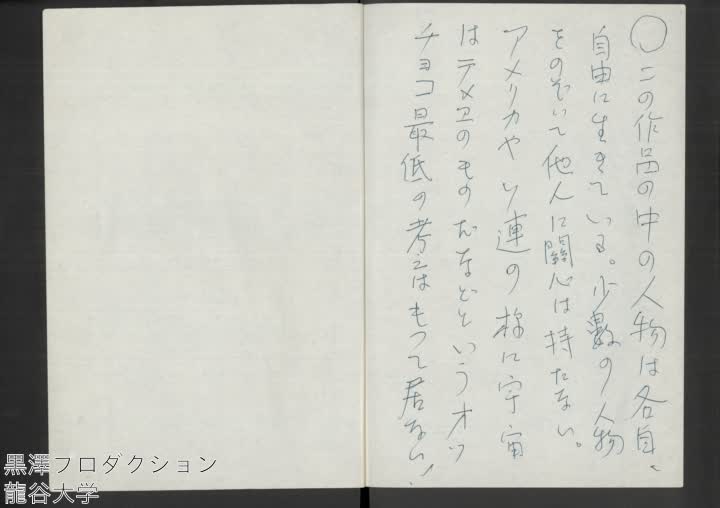 ○この作品の中の人物は各自、
自由に生きている。少數の人物
をのぞいて他人に關心は持たない。
アメリカやソ連の様に宇宙
はテメエのものだなどというオッ
チョコ最低の考えはもって居ない!
黒澤プロダクション
龍谷大学